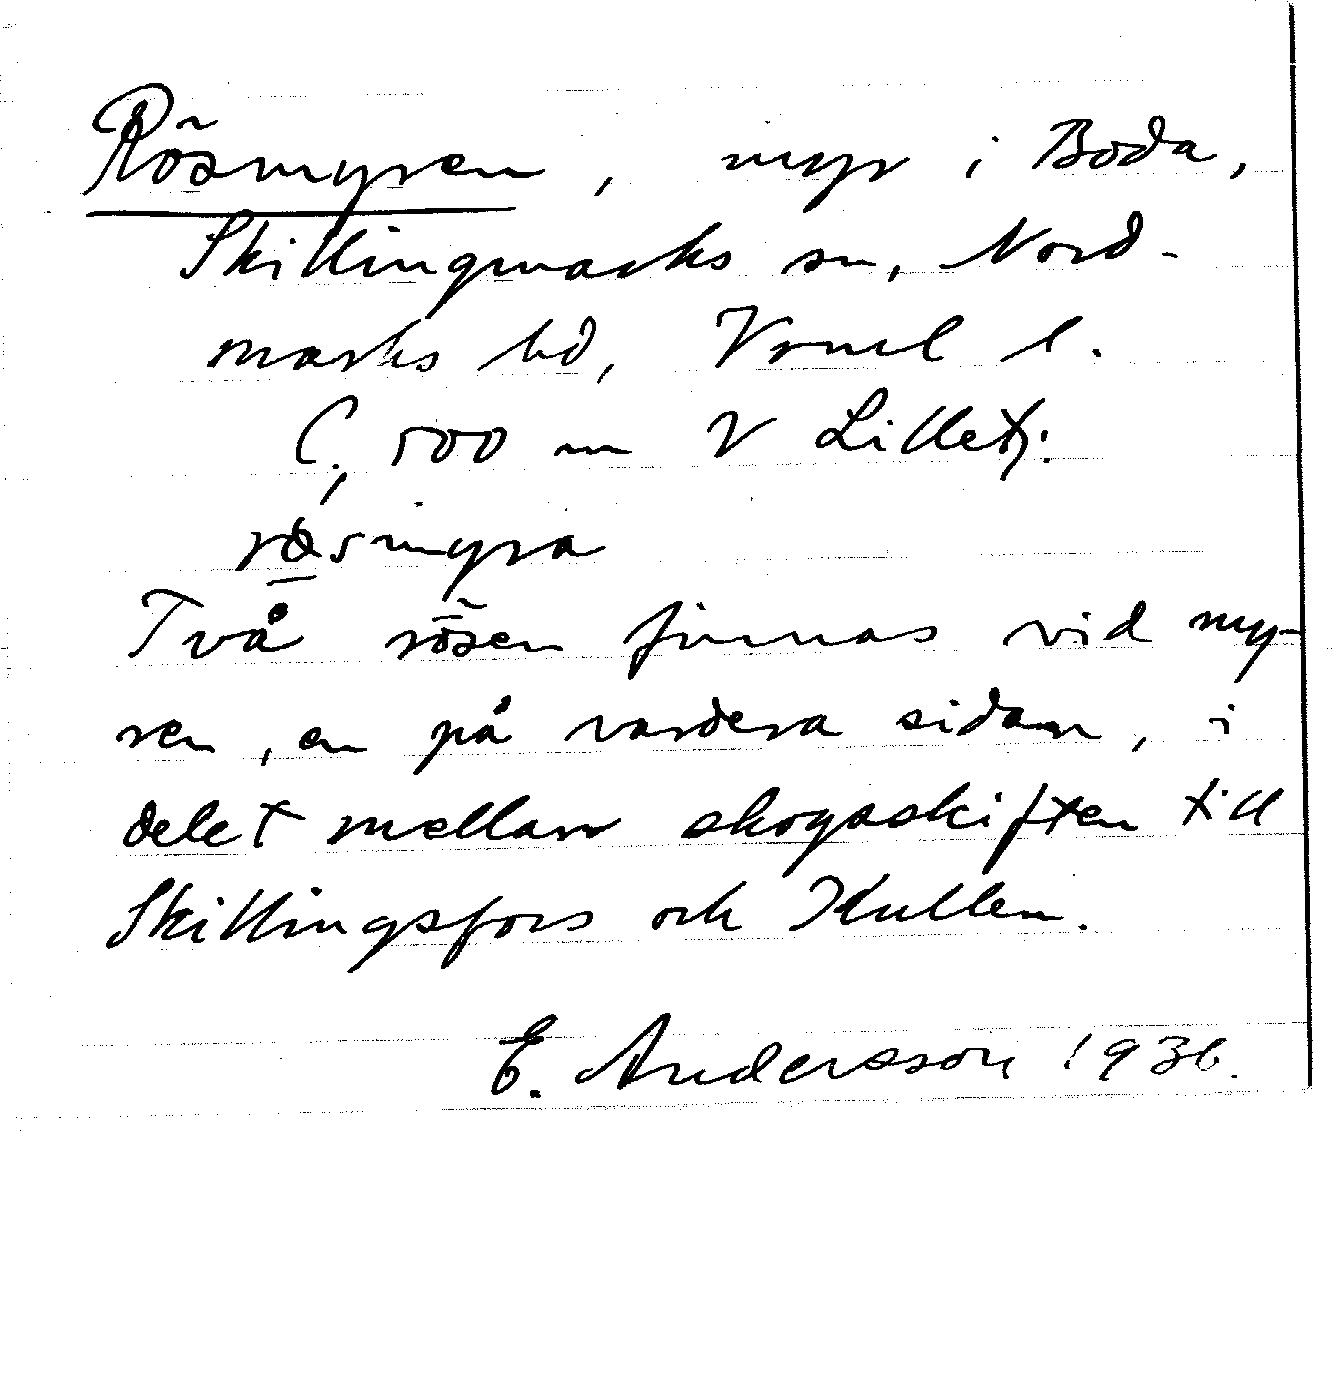 Rösmyren, myr i Boda,
Skillingmarks sn, Nord-
marks hd, Vrml l.
C., 500 m V Lilletj.
røsmyra
Två rösen finnas vid my-
ren, en på vardera sidan, i
delet mellan skogsskiften till
Skillingsfors och Kullen.
E. Andersson 1936.